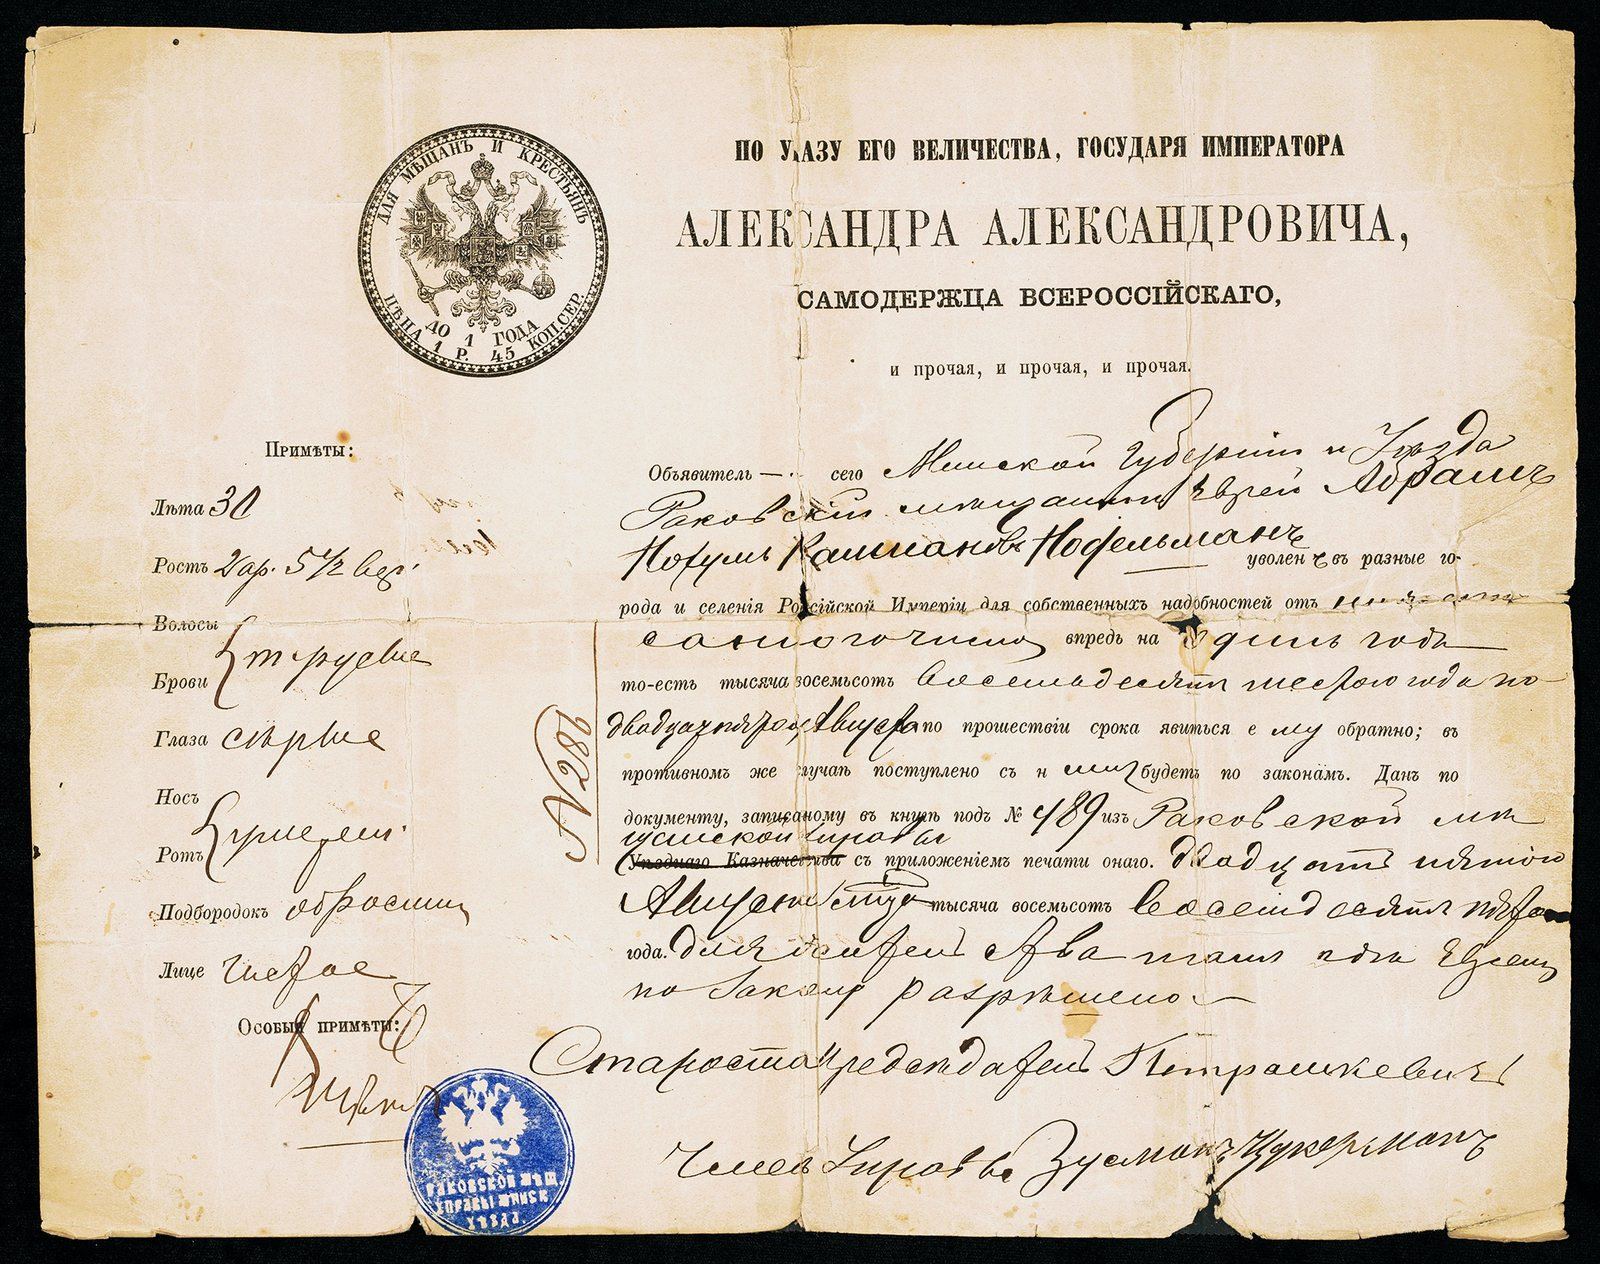 ПО УКАЗУ ЕГО ВЕЛИЧЕСТВА, ГОСУДАРЯ ИМПЕРАТОРА
АЛЕКСАНДРА АЛЕКСАНДРОВИЧА,
САМОДЕРЖЦА ВСЕРОССІЙСКАГО,
и прочая, и прочая, и прочая.
ДЛЯ МѢЩАНЪ И КРЕСТЬЯНЪ
ДО 1 ГОДА
ЦѢНА 1 Р. 45 КОП. СЕР.
Примѣты:
Лѣта 30
Ростъ 2 ар. 5 1/2 вер.
Волосы
Брови
Глаза сѣрые
Носъ
Ротъ
Подбородокъ
Лице чистое
Особыя примѣты:
РАКОВСКОЙ МѢЩ
УПРАВЫ МИНСК
УѢЗД.
Объявитель сего Минской Губерніи и Уѣзда
Раковскій мѣщанинъ Еврей Абрамъ
Нохумъ Калмановъ Нофельманъ уволенъ въ разные го-
рода и селенія Россійской Имперіи для собственныхъ надобностей отъ нижепи
саннаго числа впредь на одинъ годъ
то-есть тысяча восемьсотъ восемьдесятъ шестого года по
двадцать пятое Августа по прошествіи срока явиться ему обратно; въ
противномъ же случаѣ поступлено съ нимъ будетъ по законамъ. Данъ по
документу, записаному въ книгѣ подъ № 489 изъ Раковской мѣ
щанской Управы
Уѣзднаго Казначейства съ приложеніемъ печати онаго. Двадцать пятого
Августа тысяча восемьсотъ восемьдесятъ пятого
года. Для жительства тамъ гдѣ Евреямъ
по закону разрѣшено
№ 286
Староста Предсѣдатель Петрашкевичъ
Членъ Управы Зусманъ Цукерманъ